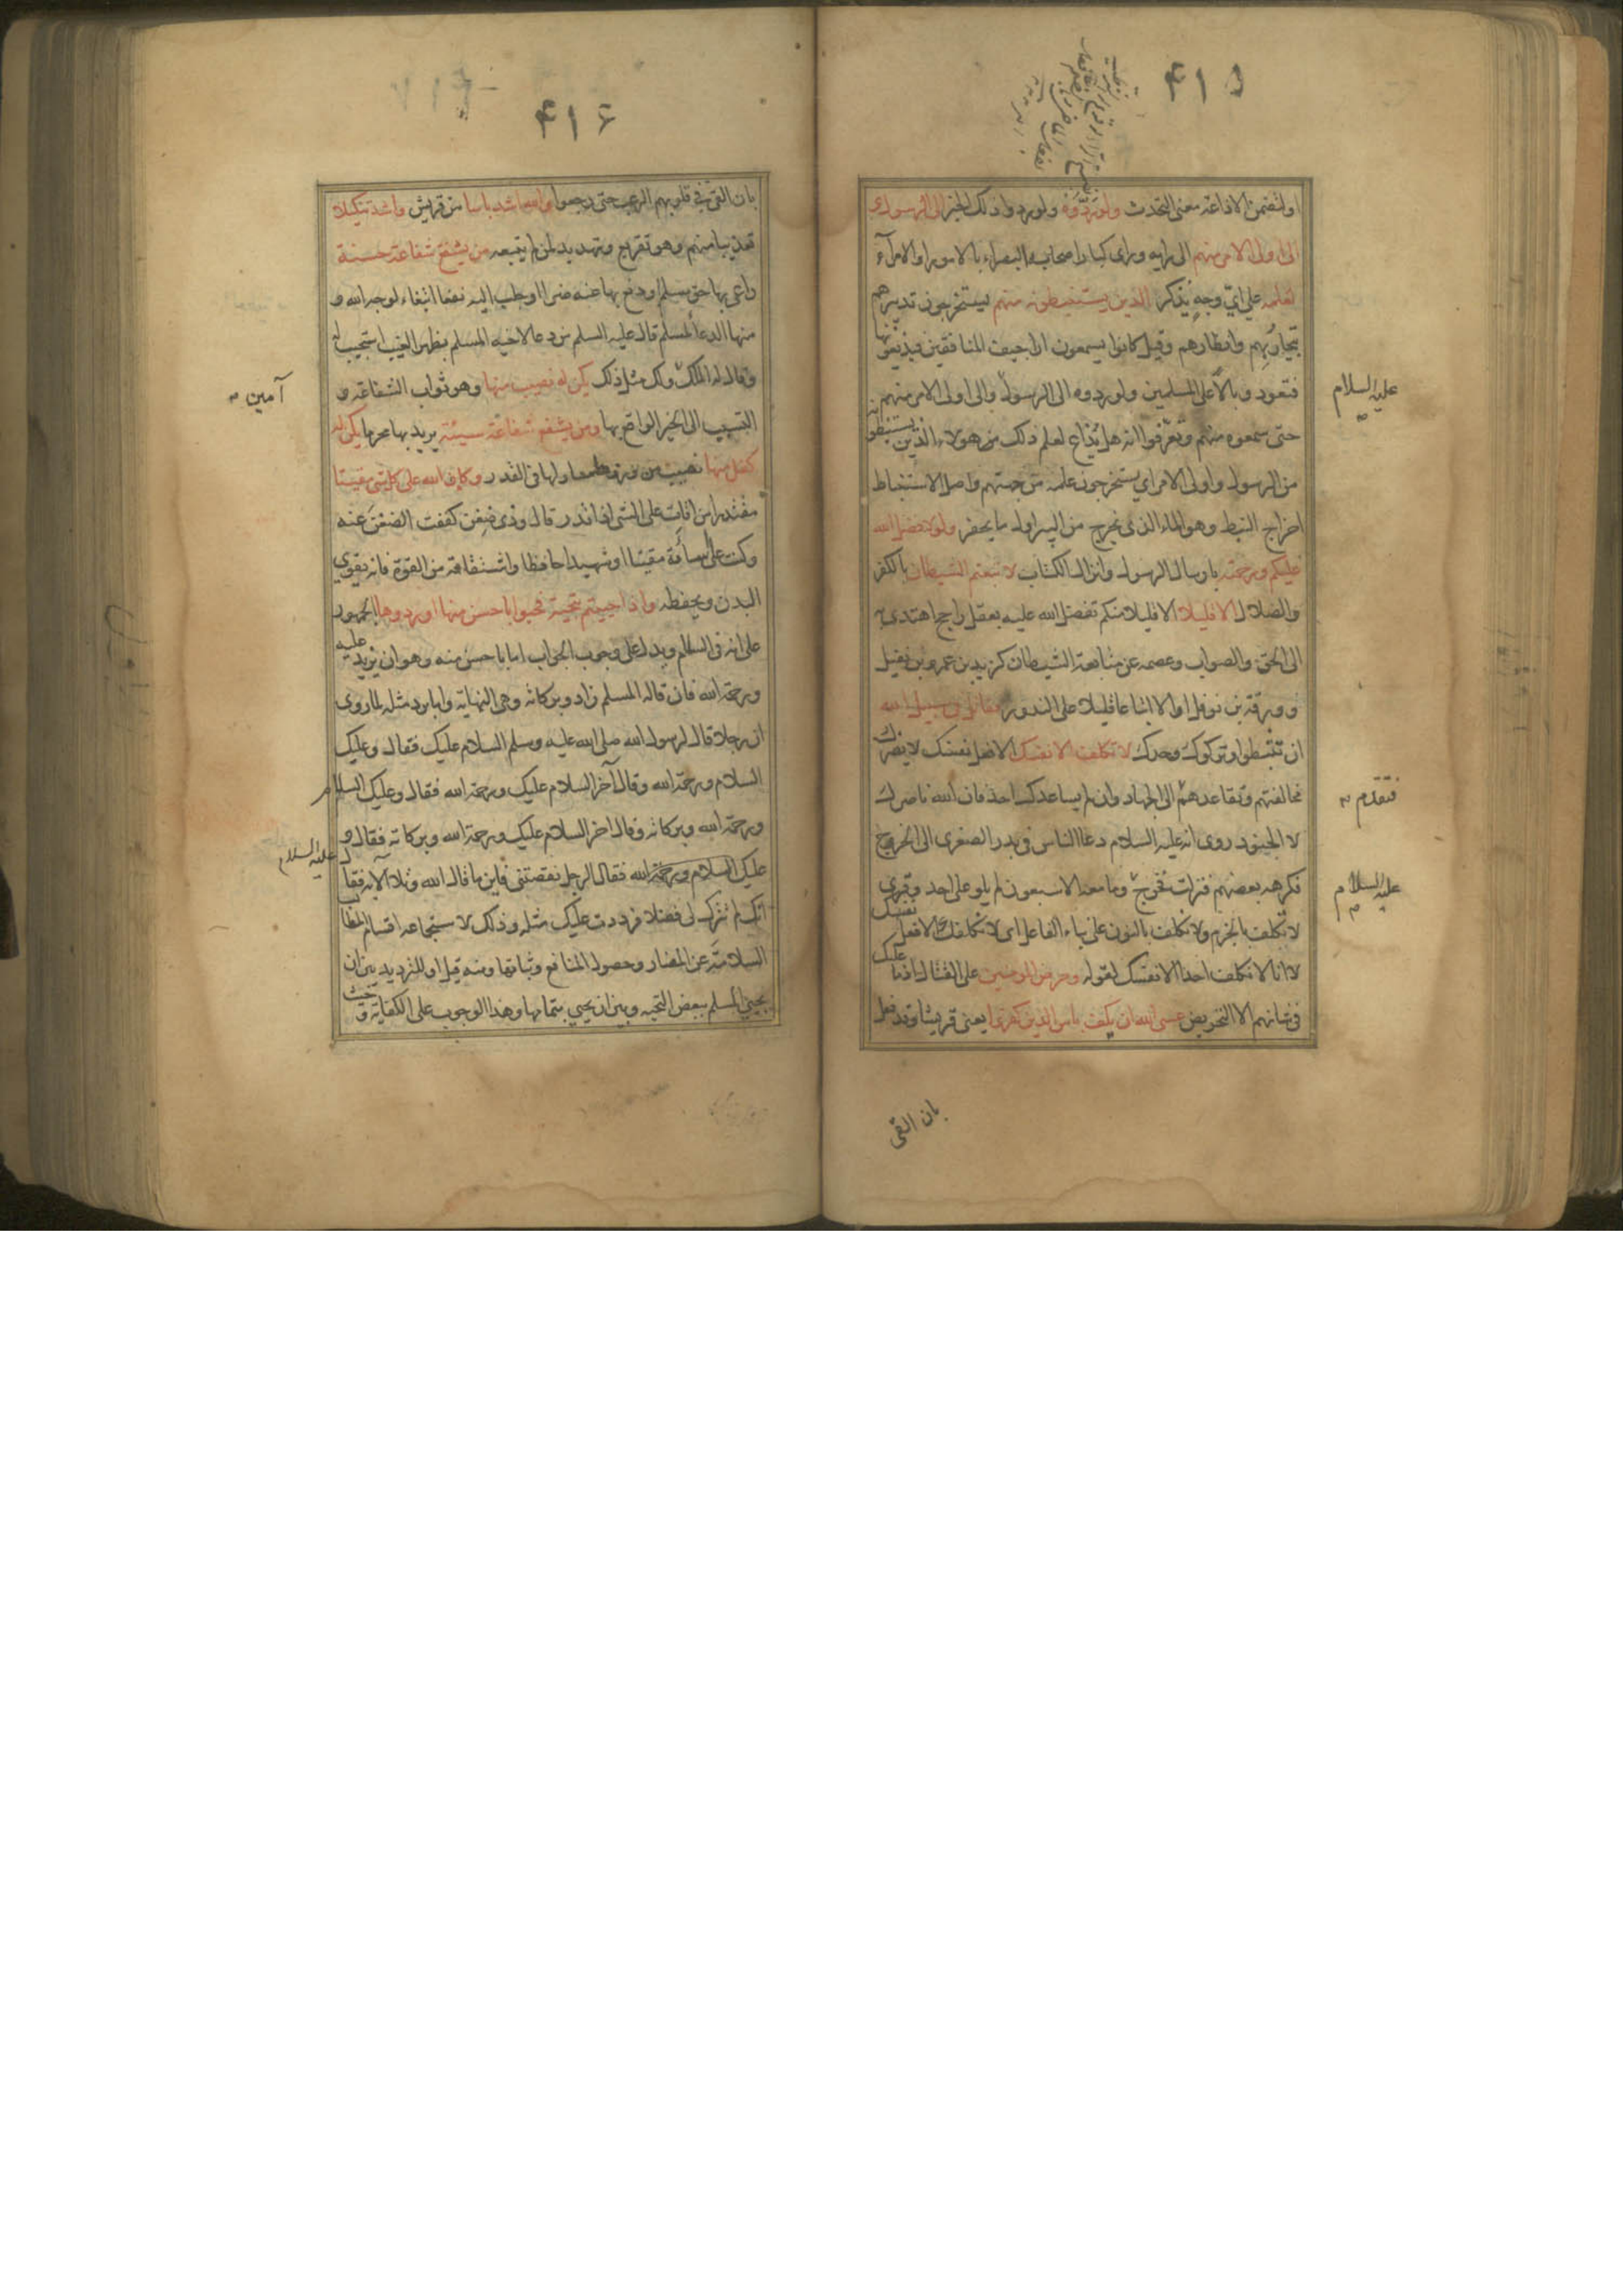 ٤١٥
او لتضمن الاذاعة معنى التحدث ولو ردوه ولو ردوا ذلك الخبر الى الرسول و
الى اولى الامر منهم الى رايه وراى كبار اصحابه البصراء بالامور او الامرآء
لعلمه على اىّ وجهٍ يُذكر الذين يستنبطونه منهم يستخرجون تدبيرهم
بتجاربهم وانظارهم وقيل كانوا يسمعون اراجيف المنافقين فيذيعونها
فتعود وبالاً على المسلمين ولو ردوه الى الرسول والى اولى الامر منهم
عليه السلام
حتى سمعوه منهم وتعرّفوا انه هل يُذاع لعلم ذلك من هولاء الذين يستنبطونه
من الرسول واولى الامر اى يستخرجون علمه من جهتهم واصل الاستنباط
اخراج النبط وهو الماء الذى يخرج من البير اول ما يحفر ولولا فضل الله
عليكم ورحمته بارسال الرسول وانزال الكتاب لاتبعتم الشيطان بالكفر
والضلال الا قليلا الا قليلا منكم تفضل الله عليه بعقل راجح اهتدى به
الى الحق والصواب وعصمه عن متابعة الشيطان كزيد بن عمرو بن نفيل
وورقة بن نوفل او الا اتباعا قليلا على الندور فقاتل فى سبيل الله
ان تثبطوا وتركوك وحدك لا تكلف الا نفسك الا فعل نفسك لا يضرك
مخالفتهم وتقاعدهم الى الجهاد وان لم يساعدك احد فان الله ناصرك
فتقدم
لا الجنود روى انه عليه السلام دعا الناس فى بدر الصغرى الى الخروج
فكرهه بعضهم فنزلت فخرج وما معه الا سبعون لم يلو على احد وقرى
عليه السلام
لا تكلف بالجزم ولا نكلف بالنون على بناء الفاعل اى لا نكلفك الا فعل نفسك
لا انا لا نكلف احدا الا نفسك لقوله وحرض المومنين على القتال اذ ما عليك
فى شانهم الا التحريض عسى الله ان يكف باس الذين كفروا يعنى قريشا وقد فعل
بان القى
٤١٦
بان القى فى قلوبهم الرعب حتى رجعوا والله اشد باسا من قريش واشد تنكيلا
تعذيبا منهم وهو تقريع وتهديد لمن لم يتبعه من يشفع شفاعة حسنة
راعى بها حق مسلم او دفع بها عنه ضرا او جلب اليه نفعا ابتغاء لوجه الله و
منها الدعا لمسلم قال عليه السلم من دعا لاخيه المسلم بظهر الغيب استجيب له
وقال له الملك ولك مثل ذلك يكن له نصيب منها وهو ثواب الشفاعة و
آمين
التسبب الى الخير الواقع بها ومن يشفع شفاعة سيئة يريد بها محرما يكن له
كفل منها نصيب من وزرها مساو لها فى القدر وكان الله على كل شى مقيتا
مقتدرا من اقات على الشى اذا قدر قال وذى ضغن كففت الضغن عنه
وكنت على اساءته مقيتا او شهيدا حافظا واشتقاقه من القوة فانه يقوى
البدن ويحفظه واذا حييتم بتحية فحيوا باحسن منها او ردوها الجمهور
على انه فى السلام ويدل على وجوب الجواب اما باحسن منه وهو ان يزيد عليه
ورحمة الله فان قاله المسلم زاد وبركاته وهى النهاية واما برد مثله لما روى
ان رجلا قال لرسول الله صلى الله عليه وسلم السلام عليك فقال وعليك
السلام ورحمة الله وقال آخر السلام عليك ورحمة الله فقال وعليك السلام
ورحمة الله وبركاته وقال اخر السلام عليك ورحمة الله وبركاته فقال و
عليك السلام ورحمة الله فقال الرجل نقصتنى فاين ما قال الله وتلا الآية فقال
عليه السلام
انك لم تترك لى فضلا فرددت عليك مثله وذلك لاستجماعه اقسام المطالب
السلامة عن المضار وحصول المنافع وثباتها ومنه قيل او للترديد بين ان
يحيى المسلم ببعض التحية وبين ان يحيى بتمامها وهذا الوجوب على الكفاية وحيث